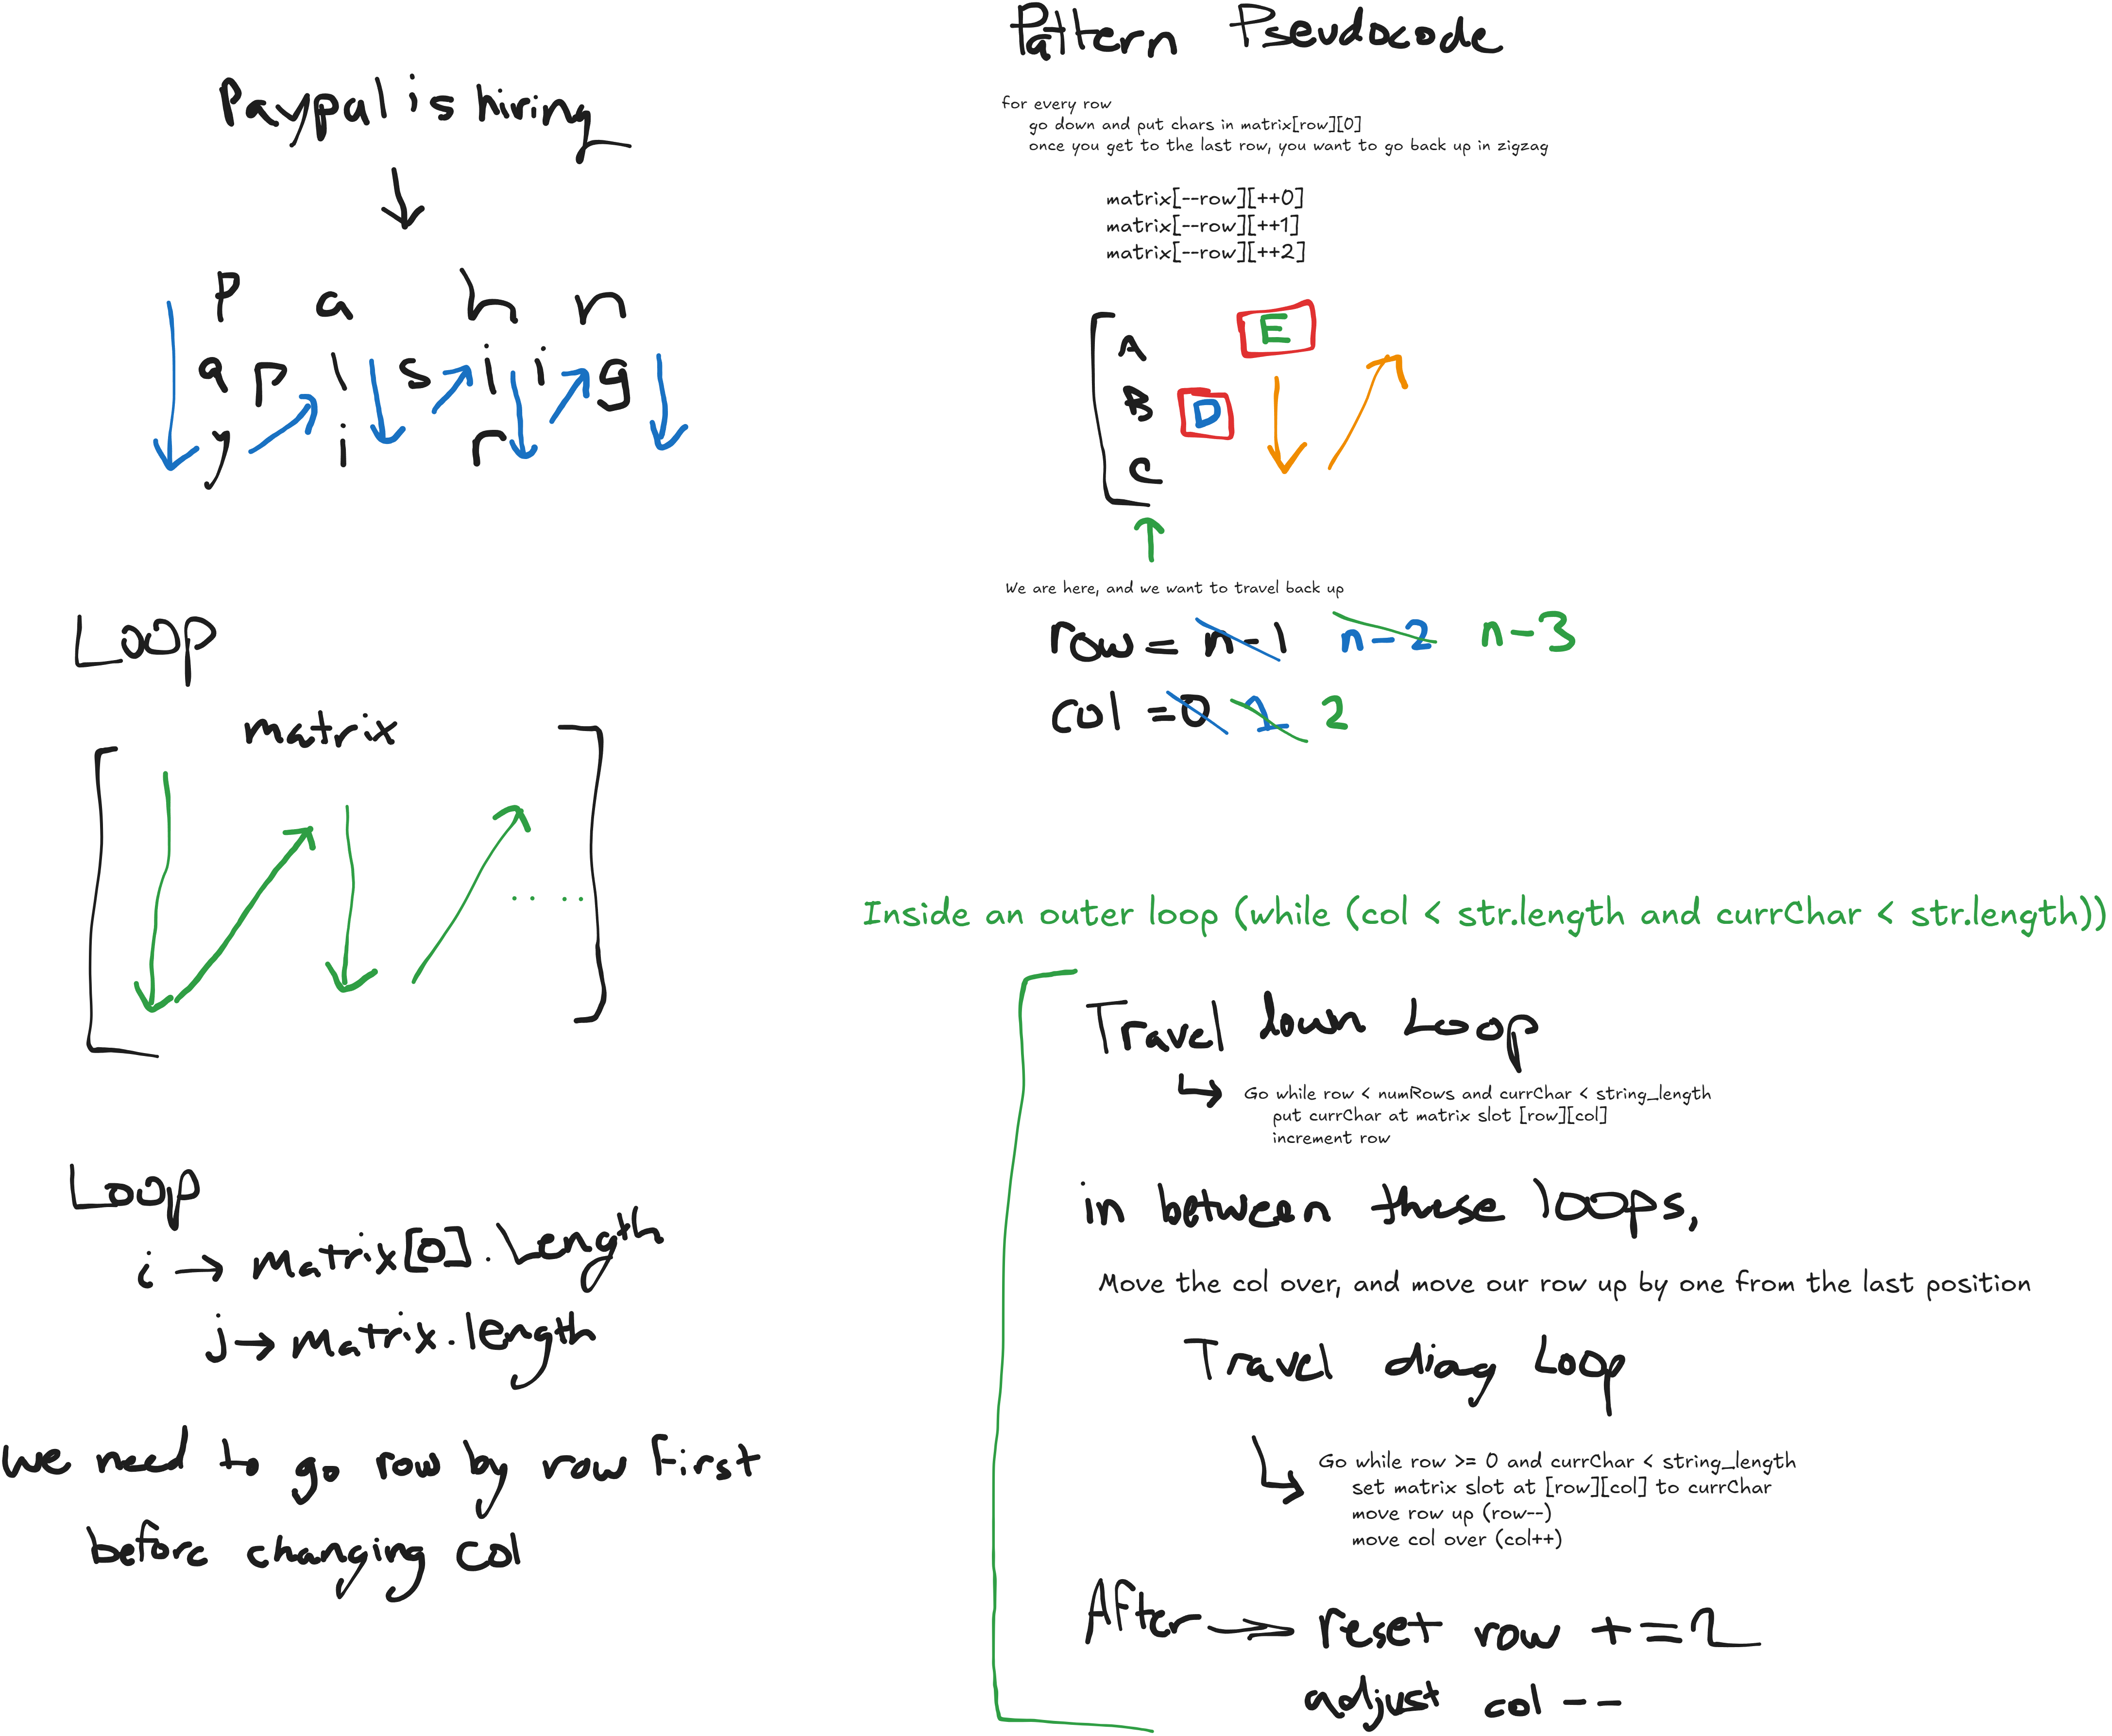 Paypal is hiring
P a h n
a p l s i i g
y i r
Loop
matrix
Loop
i → Matrix[0].Length
j → Matrix.length
we need to go row by row first
before changing col
Pattern Pseudocode
for every row
go down and put chars in matrix[row][0]
once you get to the last row, you want to go back up in zigzag
matrix[--row][++0]
matrix[--row][++1]
matrix[--row][++2]
A E
B D
C
We are here, and we want to travel back up
row = n-1 n-2 n-3
col = 0 1 2
Inside an outer loop (while (col < str.length and currChar < str.length))
Travel down Loop
Go while row < numRows and currChar < string_length
put currChar at matrix slot [row][col]
increment row
in between these loops,
Move the col over, and move our row up by one from the last position
Travel diag Loop
Go while row >= 0 and currChar < string_length
set matrix slot at [row][col] to currChar
move row up (row--)
move col over (col++)
After → reset row +=2
adjust col --